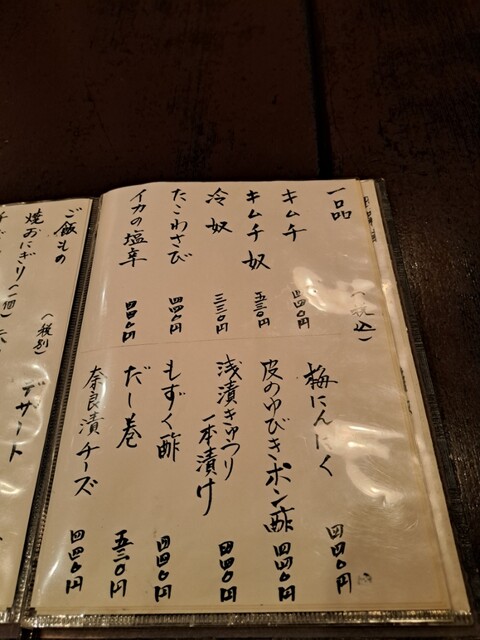 一品
(税込)
キムチ 四四〇円
キムチ奴 五五〇円
冷奴 三三〇円
たこわさび 四四〇円
イカの塩辛 四四〇円
梅にんにく 四四〇円
皮のゆびきポン酢 四四〇円
浅漬きゅうり
一本漬け 四四〇円
もずく酢 四四〇円
だし巻 五五〇円
奈良漬チーズ 四四〇円
ご飯もの (税別)
焼おにぎり(一個)
デザート